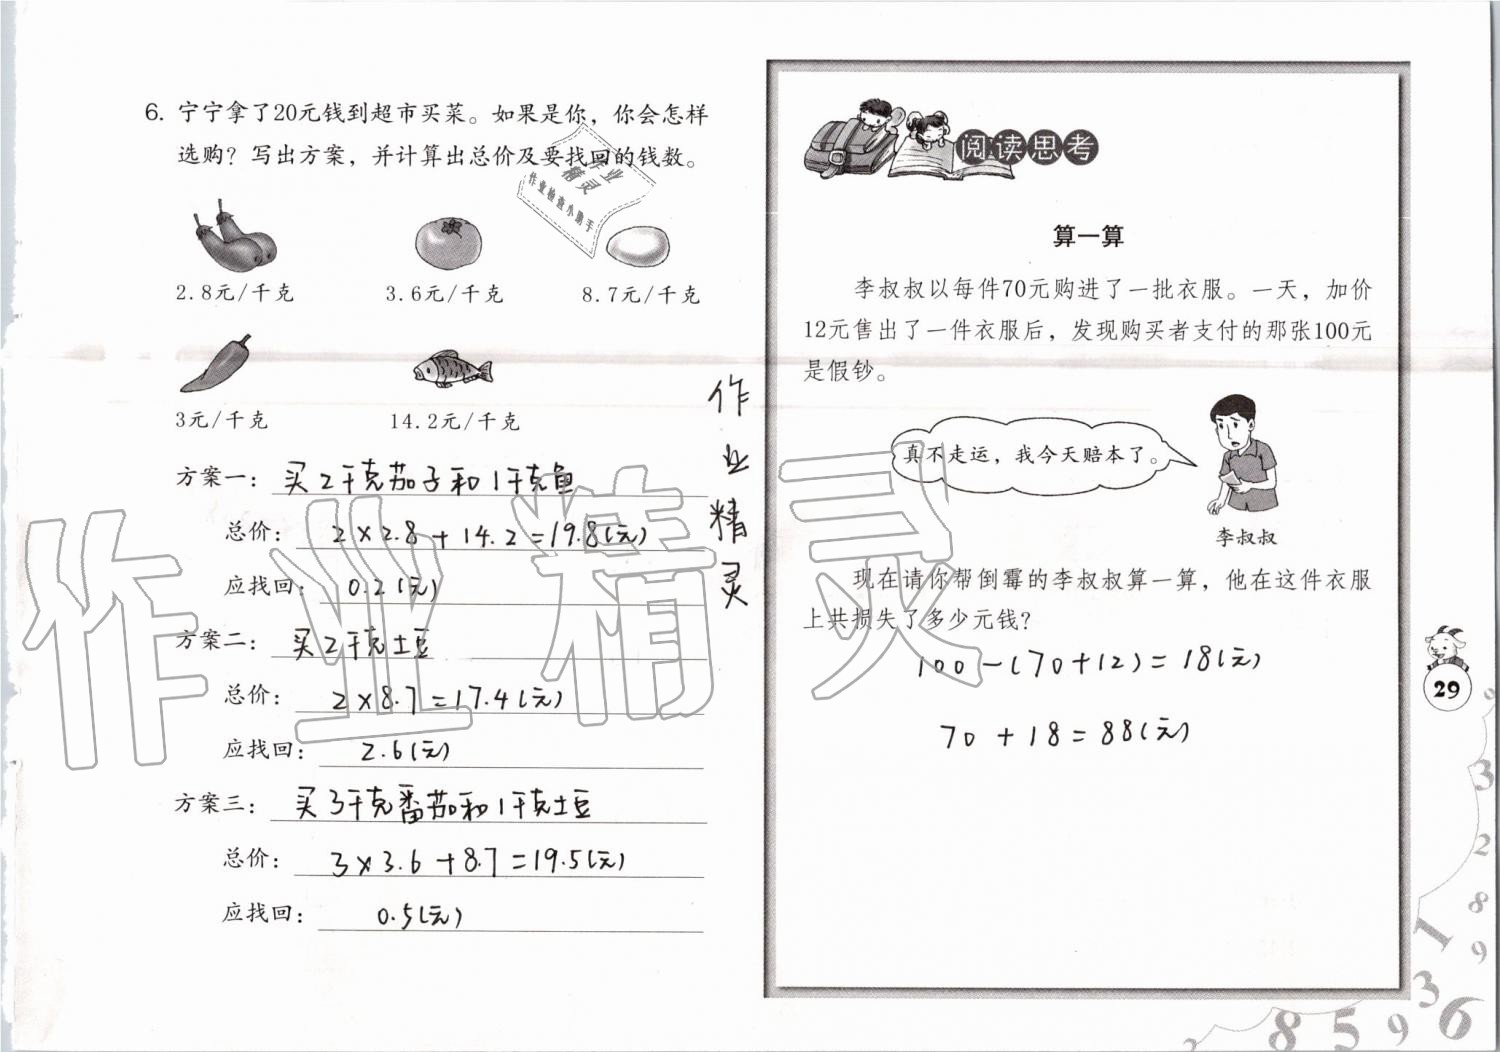 6. 宁宁拿了20元钱到超市买菜。如果是你，你会怎样
选购？写出方案，并计算出总价及要找回的钱数。
作业
精灵
作业检查小助手
2.8元/千克 3.6元/千克 8.7元/千克
3元/千克 14.2元/千克
方案一： 买2千克茄子和1千克鱼
总价： 2×2.8+14.2=19.8(元)
应找回： 0.2(元)
方案二： 买2千克土豆
总价： 2×8.7=17.4(元)
应找回： 2.6(元)
方案三： 买3千克番茄和1千克土豆
总价： 3×3.6+8.7=19.5(元)
应找回： 0.5(元)
作业精灵
作业精灵
阅读思考
算一算
李叔叔以每件70元购进了一批衣服。一天，加价
12元售出了一件衣服后，发现购买者支付的那张100元
是假钞。
真不走运，我今天赔本了。
李叔叔
现在请你帮倒霉的李叔叔算一算，他在这件衣服
上共损失了多少元钱？
100-(70+12)=18(元)
70+18=88(元)
29
3
2
8
9
1
3
6
9
5
8
2